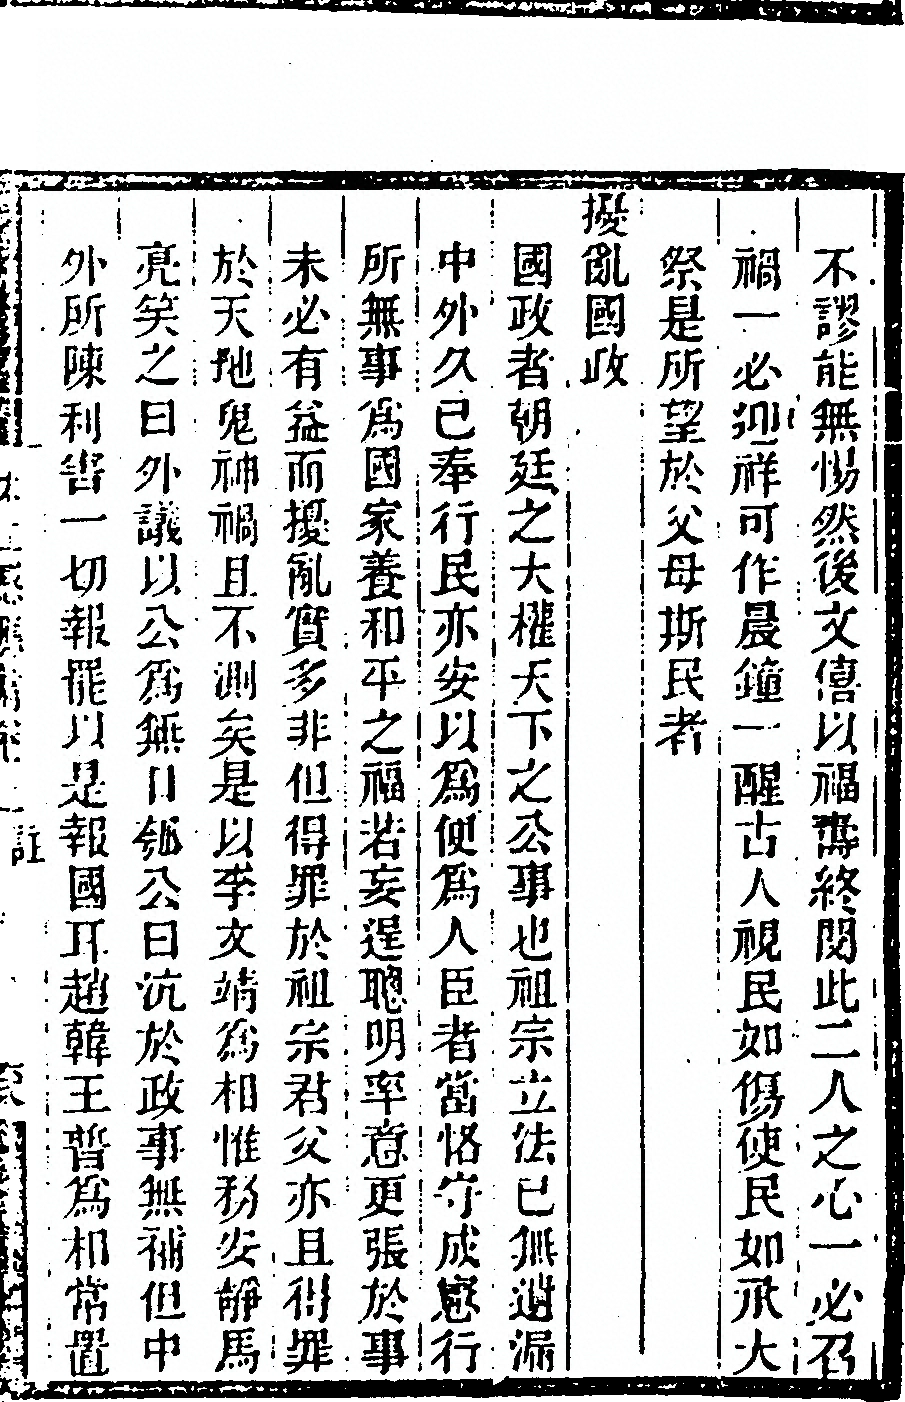 不謬能無惕然後文僖以福壽終閱此二人之心一必召
禍一必迎祥可作晨鐘一醒古人視民如傷使民如承大
祭是所望於父母斯民者
擾亂國政
國政者朝廷之大權天下之公事也祖宗立法已無遺漏
中外久已奉行民亦安以為便為人臣者當恪守成憲行
所無事為國家養和平之福若妄逞聰明率意更張於事
未必有益而擾亂實多非但得罪於祖宗君父亦且得罪
於天地鬼神禍且不測矣是以李文靖為相惟務安靜馬
亮笑之曰外議以公為無口匏公曰沆於政事無補但中
外所陳利害一切報罷以是報國耳趙韓王普為相常置
註